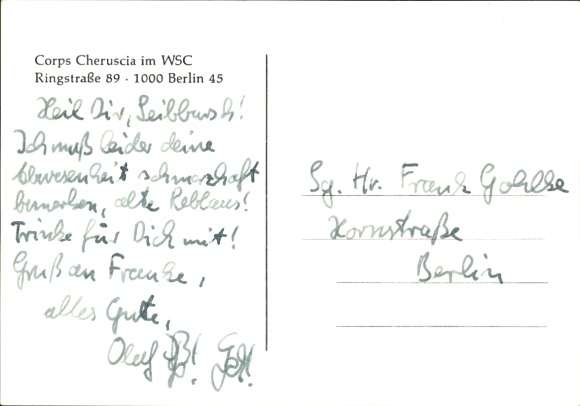 Corps Cheruscia im WSC
Ringstraße 89 · 1000 Berlin 45
Heil Dir, Leibbursch!
Ich muß leider deine
Abwesenheit schmerzhaft
bemerken, alte Reblaus!
Trinke für Dich mit!
Gruß an Franke,
alles Gute,
Olaf
Sg. Hr. Frank Gohlke
Hornstraße
Berlin